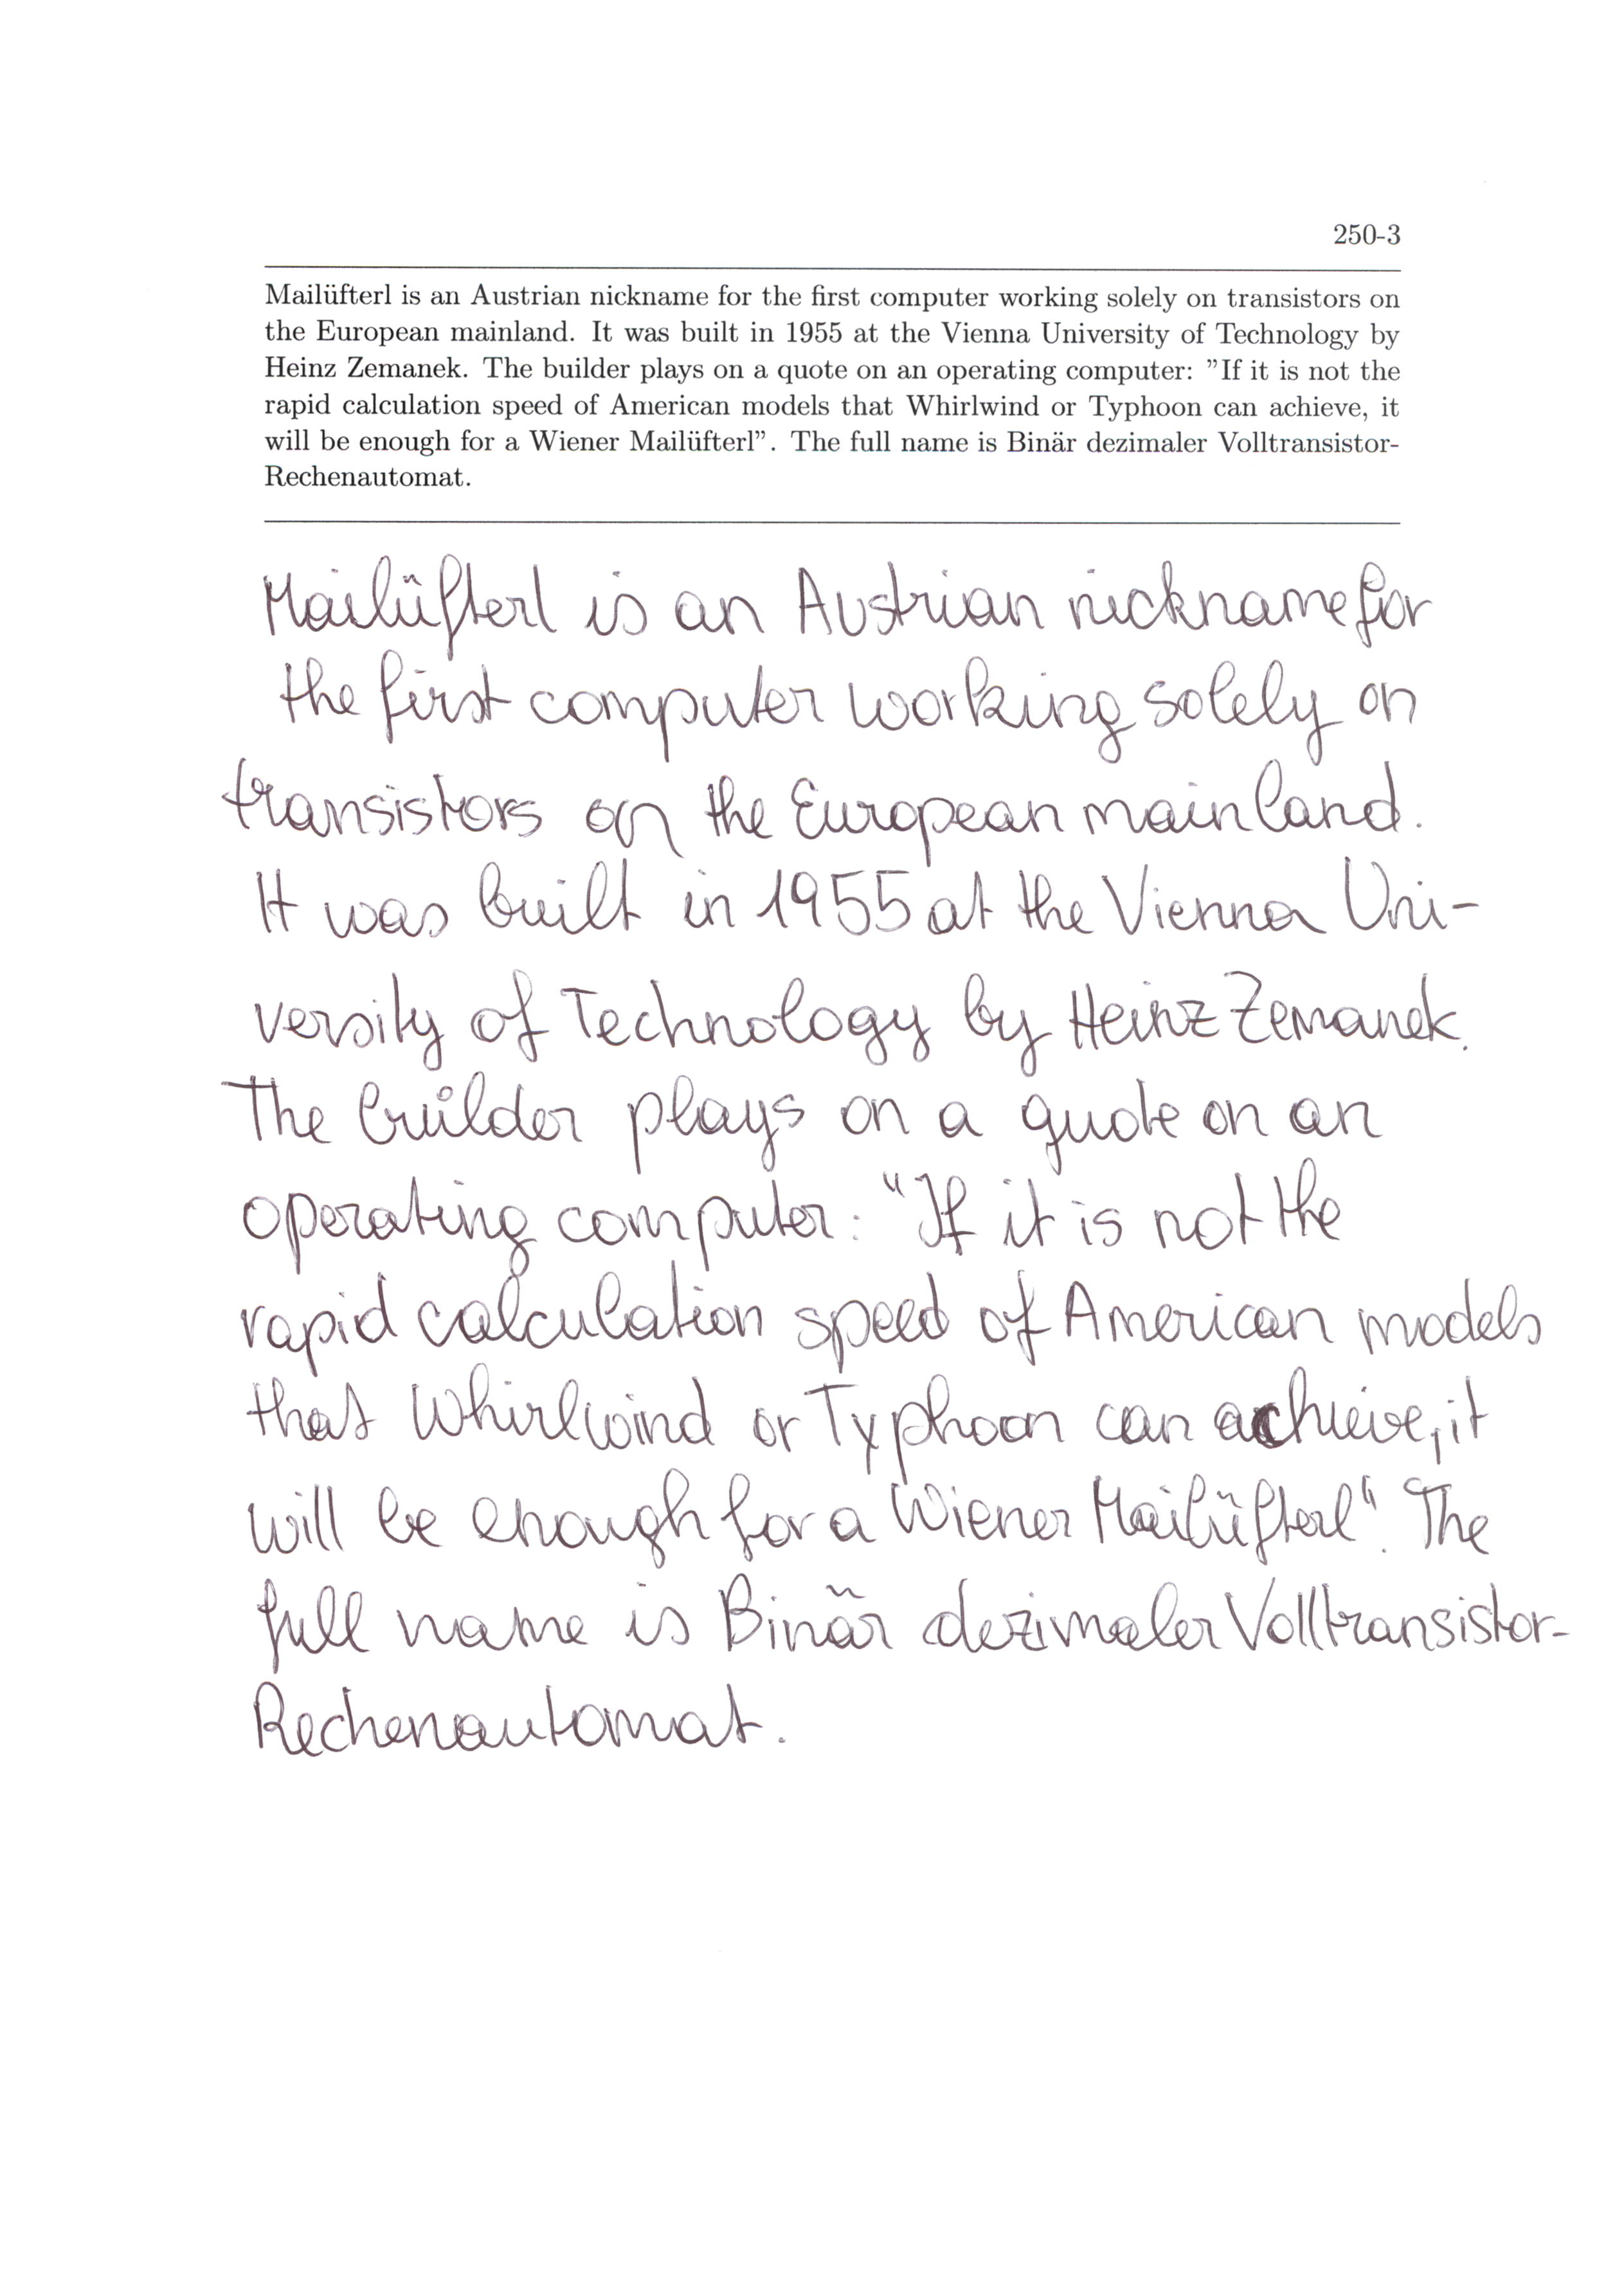 250-3
Mailüfterl is an Austrian nickname for the first computer working solely on transistors on
the European mainland. It was built in 1955 at the Vienna University of Technology by
Heinz Zemanek. The builder plays on a quote on an operating computer: ”If it is not the
rapid calculation speed of American models that Whirlwind or Typhoon can achieve, it
will be enough for a Wiener Mailüfterl”. The full name is Binär dezimaler Volltransistor-
Rechenautomat.
Mailüfterl is an Austrian nickname for
the first computer working solely on
transistors on the European mainland.
It was built in 1955 at the Vienna Uni-
versity of Technology by Heinz Zemanek.
The builder plays on a quote on an
operating computer: "If it is not the
rapid calculation speed of American models
that Whirlwind or Typhoon can achieve, it
will be enough for a Wiener Mailüfterl". The
full name is Binär dezimaler Volltransistor-
Rechenautomat.